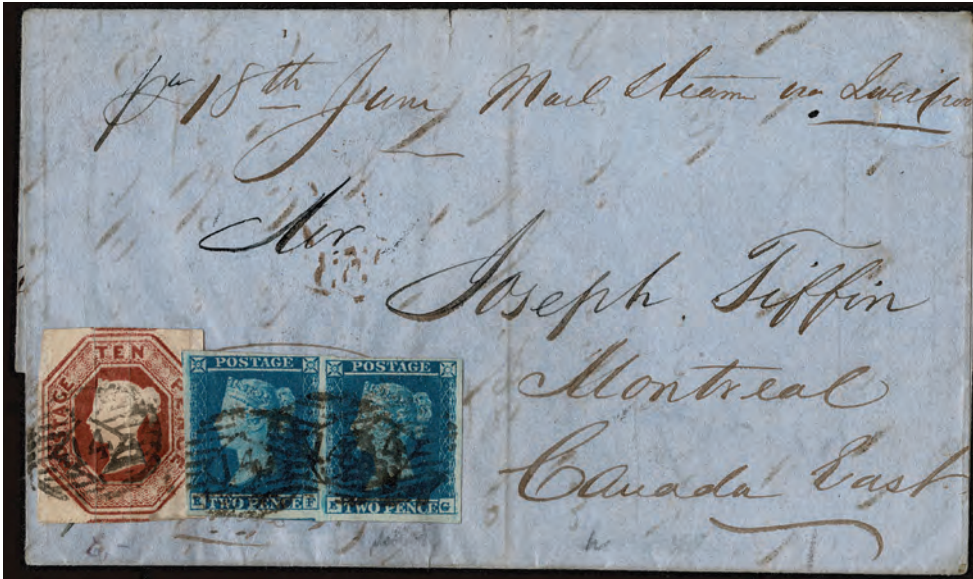 pr 18th June Mail Steam via Liverpoo
Mr
Joseph Tiffin
Montreal
Canada East
TEN
POSTAGE
POSTAGE
POSTAGE
TWO PENCE F
TWO PENCE G